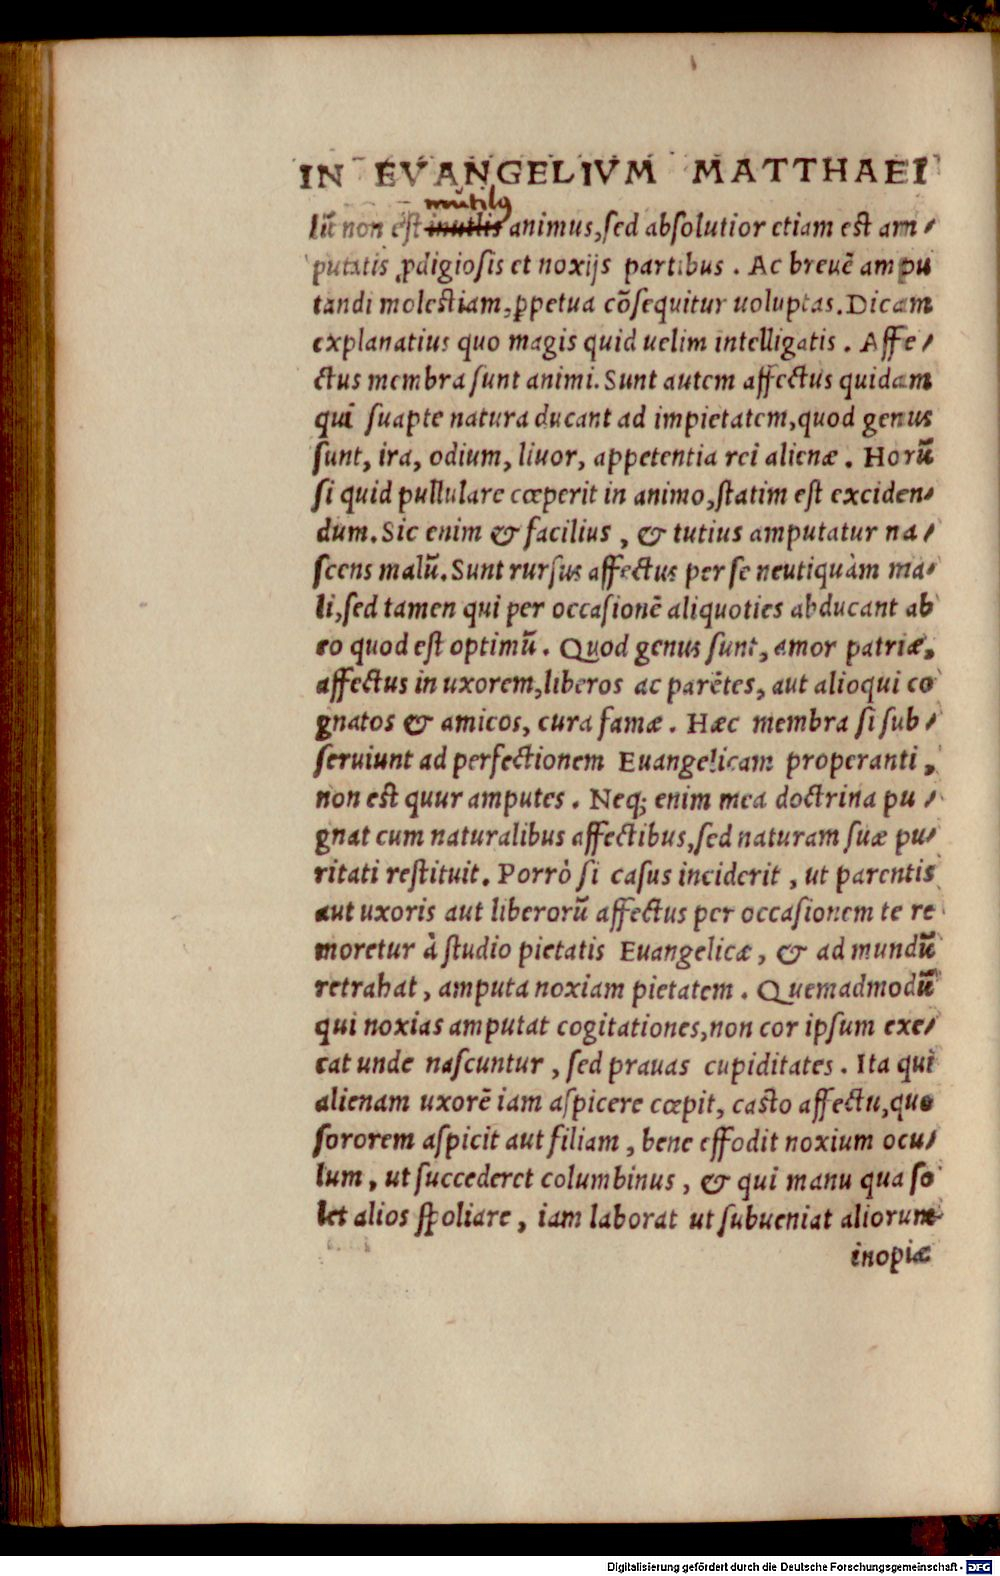 IN EVANGELIVM MATTHAEI
mutilꝰ
lũ non est inutilis animus, sed absolutior etiam est am⸗
putatis ꝓdigiosis et noxijs partibus. Ac breuẽ ampu
tandi molestiam, ꝑpetua cõsequitur uoluptas. Dicam
explanatius quo magis quid uelim intelligatis. Affe⸗
ctus membra sunt animi. Sunt autem affectus quidam
qui suapte natura ducant ad impietatem, quod genus
sunt, ira, odium, liuor, appetentia rei alienæ. Horũ
si quid pullulare cœperit in animo, statim est exciden⸗
dum. Sic enim & facilius, & tutius amputatur na⸗
scens malũ. Sunt rursus affectus per se neutiquàm ma⸗
li, sed tamen qui per occasionẽ aliquoties abducant ab
eo quod est optimũ. Quod genus sunt, amor patriæ,
affectus in uxorem, liberos ac parẽtes, aut alioqui co
gnatos & amicos, cura famæ. Hæc membra si sub⸗
seruiunt ad perfectionem Euangelicam properanti,
non est quur amputes. Neq; enim mea doctrina pu⸗
gnat cum naturalibus affectibus, sed naturam suæ pu⸗
ritati restituit. Porrò si casus inciderit, ut parentis
aut uxoris aut liberorũ affectus per occasionem te re
moretur à studio pietatis Euangelicæ, & ad mundũ
retrahat, amputa noxiam pietatem. Quemadmodũ
qui noxias amputat cogitationes, non cor ipsum exe⸗
cat unde nascuntur, sed prauas cupiditates. Ita qui
alienam uxorẽ iam aspicere cœpit, casto affectu, quo
sororem aspicit aut filiam, bene effodit noxium ocu⸗
lum, ut succederet columbinus, & qui manu qua so
let alios spoliare, iam laborat ut subueniat aliorum
inopiæ
Digitalisierung gefördert durch die Deutsche Forschungsgemeinschaft - DFG